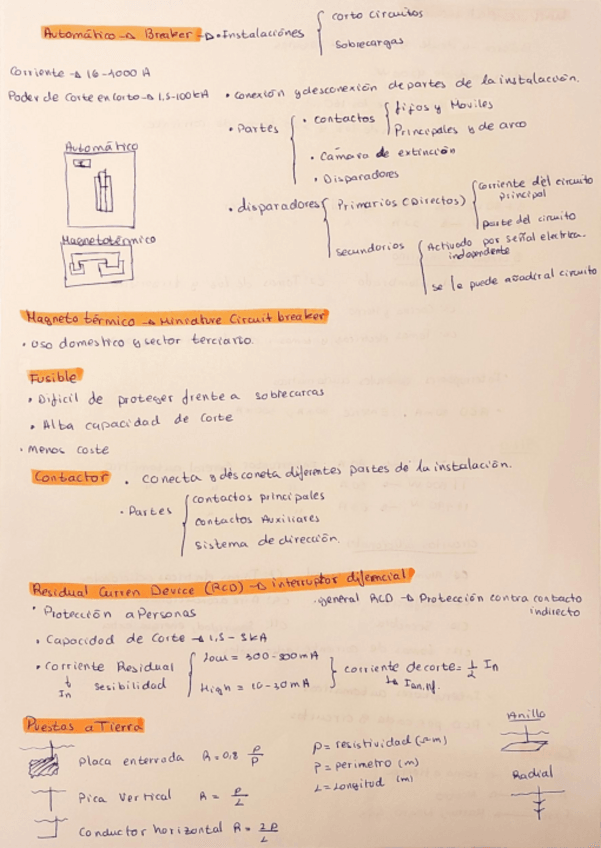 Automático → Breaker → • Instalaciónes { corto circuitos
sobrecargas
Corriente → 16-1000 A
Poder de Corte en Corto → 1,5-100kA • conexión y desconexión de partes de la instalación.
• Partes { • contactos { fijos y Moviles
Principales y de arco
• Cámara de extinción
• Disparadores
Automático
• disparadores { Primarios (Directos) { corriente del circuito principal
parte del circuito
secundarios { Activado por señal electrica. independente
se le puede añadir al circuito
Magnetotérmico
Magneto térmico → Miniature Circuit breaker
• uso domestico y sector terciario.
Fusible
• Dificil de proteger frente a sobrecarcas
• Alta capacidad de corte
• Menos coste
Contactor • conecta y désconeta diferentes partes de la instalación.
• Partes { contactos principales
contactos Auxiliares
Sistema de dirección.
Residual Curren Device (RCD) → interruptor diferncial
• Protección a Personas
• general RCD → Protección contra contacto indirecto
• Capacidad de Corte → 1,5 - 3kA
• Corriente Residual { Low = 300-500mA } corriente de corte = 1/2 In
↓
In sesibilidad High = 10-30mA
Puestas a Tierra
Placa enterrada R = 0,8 ρ/P
Pica Vertical R = ρ/L
Conductor horizontal R = 2ρ/L
ρ = resistividad (Ω·m)
P = perimetro (m)
L = Longitud (m)
Anillo
Radial